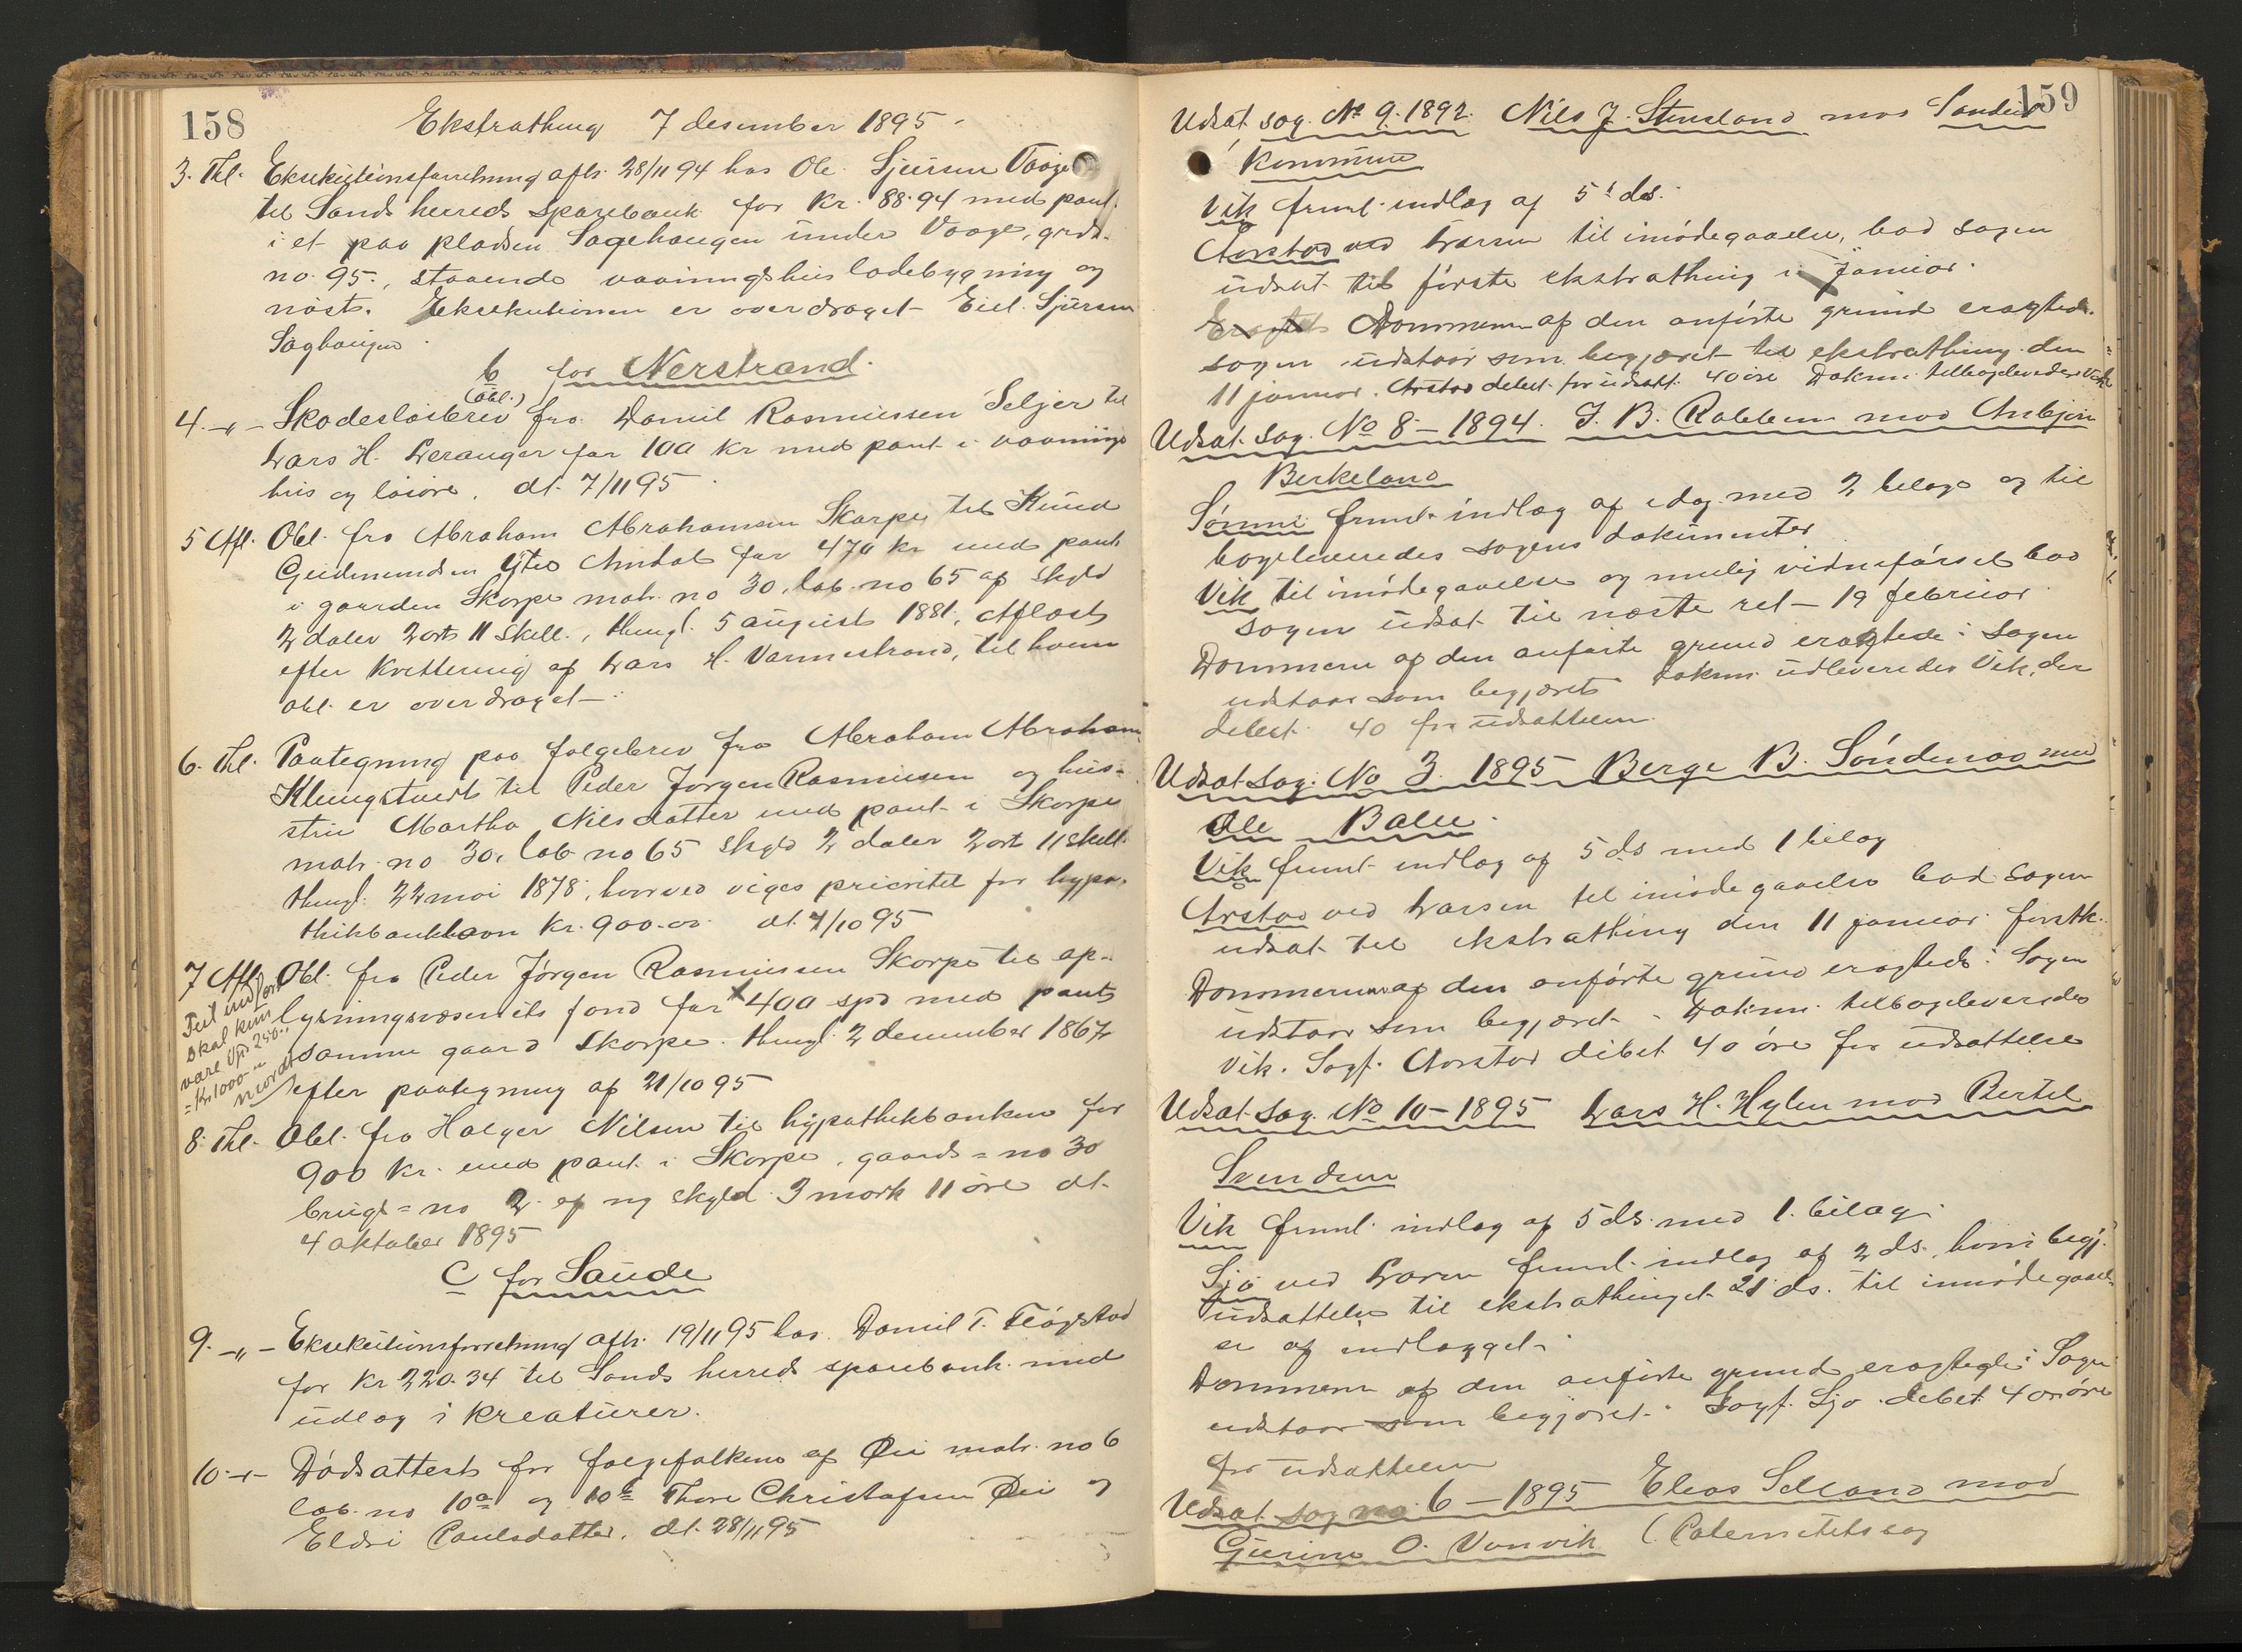 158
Ekstrathing 7 desember 1895
3. Thl. Eksekutionsforretning afh. 28/11 94 hos Ole Sjursen Vaage
til Sands herreds sparebank for Kr. 88.94 med pant
i et paa pladsen Sagehaugen under Vaage, grds.
no. 95., staaende vaaningshus ladebygning og
nøst. Eksekutionen er overdraget Eiel Sjursen
Saghaugen.
b for Nerstrand.
(Obl.)
4. -"- Skadesløsbrev fra Daniel Rasmussen Seljer til
Lars H. Leranger for 100 kr med pant i vaanings
hus og løsøre. dt. 7/11 95
5 Afl. Obl. fra Abraham Abrahamsen Skorpe til Knud
Gudmundsen Ytre Amdal for 470 kr med pant
i gaarden Skorpe matr. no 30, lab. no 65 af skyld
2 daler 2 ort 11 skill., thingl. 5 august 1881, Aflæst
efter kvittering af Lars H. Varmestrand, til hvem
obl. er overdraget.
6. Thl. Paategning paa følgebrev fra Abraham Abraham.
Klungtvedt til Peder Jørgen Rasmussen og hus-
stru Martha Nilsdatter med pant i Skorpe
matr. no 30, lab no 65 skyld 2 daler 2 ort 11 skill.
thingl. 22 mai 1878, hvorved viges prioritet for hypo-
thekbanklaan Kr. 900.00 dt. 4/10 95
7 Afl. Obl. fra Peder Jørgen Rasmussen Skorpe til op-
lysningsvæsenets fond for × 400 spd med pant
i samme gaard Skorpe. thingl. 2 desember 1867
efter paategning af 21/10 95
Feil indført
skal kun
være Spd 250
= Kr 1000
8. Thl. Obl. fra Holger Nilsen til hypothekbanken for
900 kr. med pant i Skorpe, gaards = no 30
brugs = no 2 af ny skyld 3 mark 11 øre dt.
4 oktober 1895
C for Saude
9. -"- Eksekutionsforretning afh. 19/11 95 hos Daniel T. Fløgstad
for Kr 220.34 til Sands herreds sparebank med
udlæg i kreaturer.
10 -"- Dødsattest for følgefolkene af Øie matr. no 6
lab. no 10a og 10b Thore Christofersen Øie og
Eldri Paulsdatter. dt. 28/11 95
159
Udsat sag No 9. 1892. Nils J. Stensland mod Sandeid
Kommune
Vik freml. indlæg af 5t ds.
Aarstad ved Larsen til imødegaaelse, bad sagen
udsat til første ekstrathing i januar.
Dommeren af den anførte grund eragtede:
sagen udstaar som begjæret til ekstrathing den
11 januar. Arstad debet. for udsætt. 40 øre Dokum. tilbageleveredes Vik
Udsat sag. No 8 - 1894. J. B. Rabben mod Anbjør
Berkeland
Sømme freml. indlæg af idag med 2 bilage og til
bageleveredes sagens dokumenter
Vik til imødegaaelse og mulig vidneførsel bad
sagen udsat til næste ret - 19 februar.
Dommeren af den anførte grund eragtede: Sagen
udstaar som begjæret Dokum. udleveredes Vik, der
debet. 40 for udsættelsen.
Udsat sag. No 3. 1895 Berge B. Søndenaa mod
Ole Balle.
Vik freml. indlæg af 5 ds med 1 bilag
Arstad ved Larsen til imødegaaelse bad sagen
udsat til ekstrathing den 11 januar førstk.
Dommeren af den anførte grund eragtede: Sagen
udstaar som begjæret. Dokum. tilbageleveredes
Vik. Sagf. Aarstad debet 40 øre for udsættelse
Udsat sag. No 10 - 1895 Lars H. Hylen mod Bertel
Svendsen
Vik freml. indlæg af 5 ds. med 1. bilag.
Sjø ved Larsen freml. indlæg af 2 ds. hvori begj.
udsættelse til ekstrathinget 21 ds. til imødegaael-
se af indlægget.
Dommeren af den anførte grund eragtede: Sagen
udstaar som begjæret. Sagf. Sjø debet 40 øre
for udsættelsen
Udsat sag no. 6 - 1895 Elias Selland mod
Gurine O. Vanvik (Paternitetssag